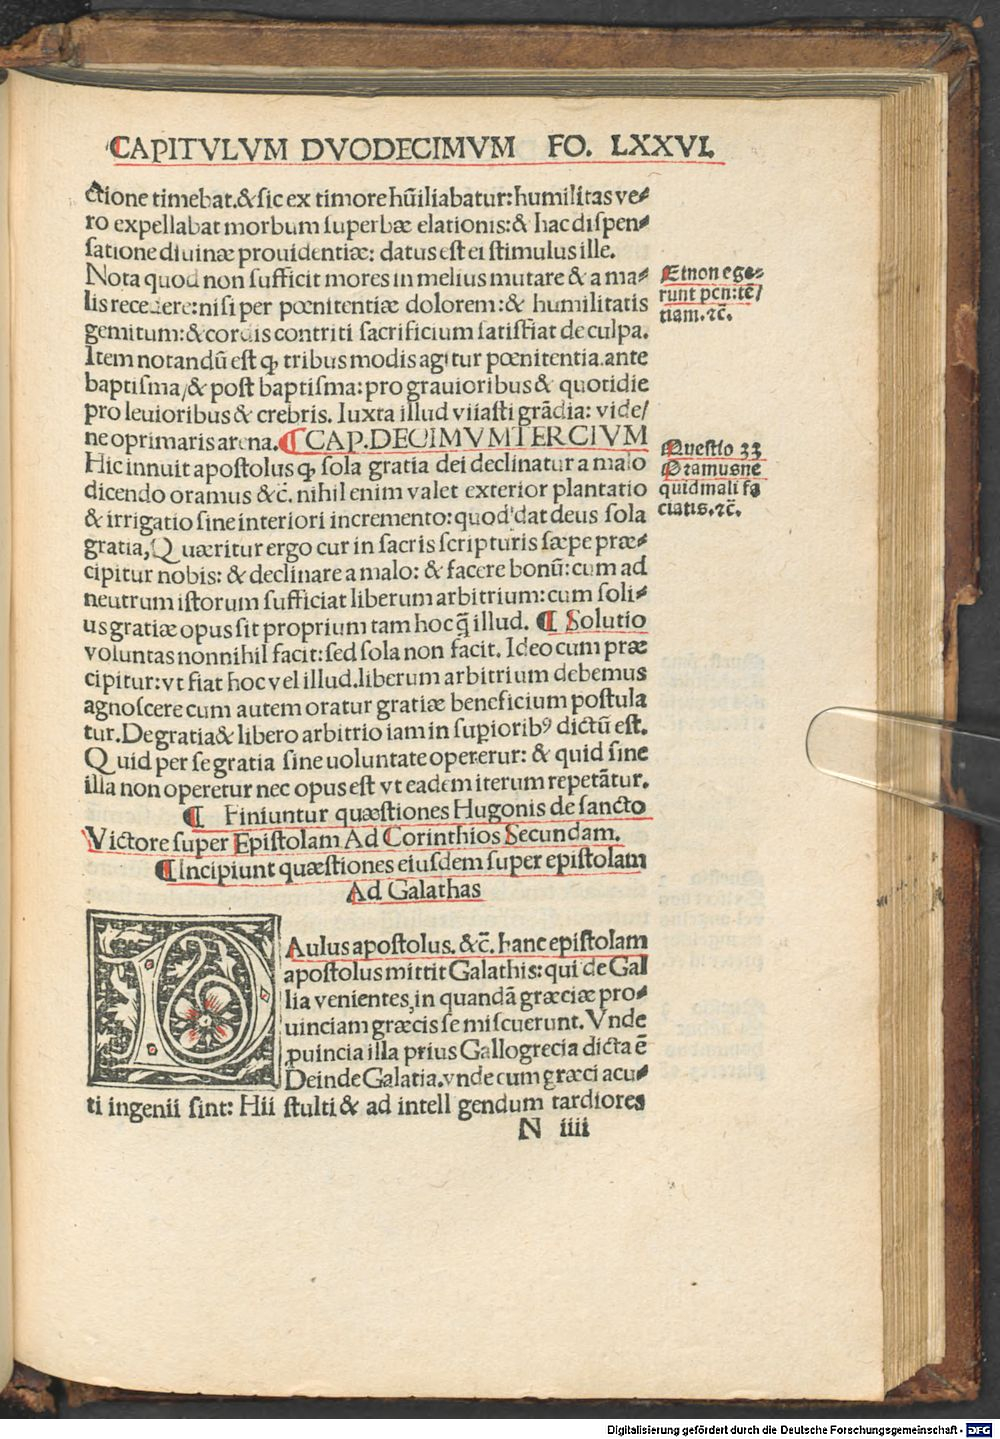 CAPITVLVM DVODECIMVM FO. LXXVI.
ctione timebat.&ſic ex timore hūiliabatur:humilitas ve⸗
ro expellabat morbum ſuperbæ elationis:& hac diſpen⸗
ſatione diuinæ prouidentiæ: datus eſt ei ſtimulus ille.
Nota quod non ſufficit mores in melius mutare & a ma⸗
lis recedere:niſi per pœnitentiæ dolorem:& humilitatis
gemitum:& cordis contriti ſacrificium ſatiſfiat de culpa.
Item notandū eſt ꝙ tribus modis agitur pœnitentia.ante
baptiſma/& poſt baptiſma:pro grauioribus & quotidie
pro leuioribus & crebris. Iuxta illud viiaſti grādia: vide/
ne oprimaris arena. ¶ CAP.DECIMVMTERCIVM
Hic innuit apoſtolus ꝙ ſola gratia dei declinatur a malo
dicendo oramus &c̄. nihil enim valet exterior plantatio
& irrigatio ſine interiori incremento:quod dat deus ſola
gratia, Quæritur ergo cur in ſacris ſcripturis ſæpe præ⸗
cipitur nobis: & declinare a malo: & facere bonū:cum ad
neutrum iſtorum ſufficiat liberum arbitrium:cum ſoli⸗
us gratiæ opus ſit proprium tam hoc q̄ illud. ¶ Solutio
voluntas nonnihil facit:ſed ſola non facit. Ideo cum præ
cipitur:vt fiat hoc vel illud.liberum arbitrium debemus
agnoſcere cum autem oratur gratiæ beneficium poſtula
tur.De gratia & libero arbitrio iam in ſuꝑioribꝰ dictū eſt.
Quid per ſe gratia ſine uoluntate operetur: & quid ſine
illa non operetur nec opus eſt vt eadem iterum repetātur.
¶ Finiuntur quæſtiones Hugonis de ſancto
Victore ſuper Epiſtolam Ad Corinthios Secundam.
¶ Incipiunt quæſtiones eiuſdem ſuper epiſtolam
Ad Galathas
PAulus apoſtolus. &c̄. hanc epiſtolam
apoſtolus mittit Galathis:qui de Gal
lia venientes in quandā græciæ pro⸗
uinciam græcis ſe miſcuerunt. Vnde
ꝓuincia illa prius Gallogrecia dicta ē
Deinde Galatia.vnde cum græci acu⸗
ti ingenii ſint: Hii ſtulti & ad intell gendum tardiores
N iiii
Et non ege⸗
runt pen:tē/
tiam.⁊c̄.
Queſtio 33
Oramus ne
quid mali fa
ciatis.⁊c̄.
Digitalisierung gefördert durch die Deutsche Forschungsgemeinschaft - DFG